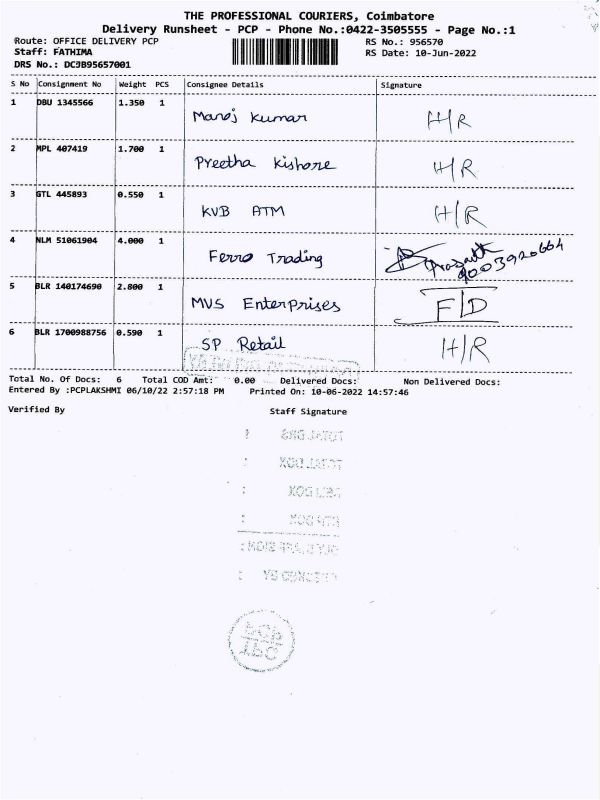 THE PROFESSIONAL COURIERS, Coimbatore
Delivery Runsheet - PCP - Phone No.:0422-3505555 - Page No.:1
Route: OFFICE DELIVERY PCP RS No.: 956570
Staff: FATHIMA RS Date: 10-Jun-2022
DRS No.: DCJB95657001
S No Consignment No Weight PCS Consignee Details Signature
1 DBU 1345566 1.350 1 Manoj Kumar H/R
2 MPL 407419 1.700 1 Preetha Kishore H/R
3 GTL 445893 0.550 1 KVB ATM H/R
4 NLM 51061904 4.000 1 Ferro Trading Prasanth 9003920664
5 BLR 140174690 2.800 1 MVS Enterprises F/D
6 BLR 1700988756 0.590 1 SP Retail H/R
Total No. Of Docs: 6 Total COD Amt: 0.00 Delivered Docs: Non Delivered Docs:
Entered By :PCPLAKSHMI 06/10/22 2:57:18 PM Printed On: 10-06-2022 14:57:46
Verified By Staff Signature